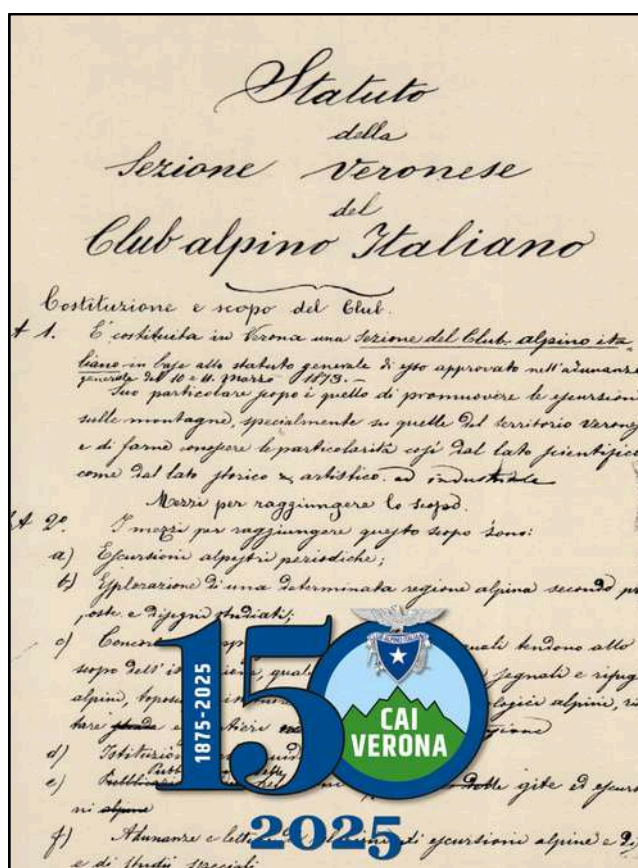 Statuto
della
Sezione Veronese
del
Club alpino Italiano
Costituzione e scopo del Club.
A 1. E' costituita in Verona una Sezione del Club alpino ita
liano in base allo statuto generale di esso approvato nell'adunanza
generale del 10 e 11 Marzo 1873. —
Suo particolare scopo è quello di promuovere le escursioni
sulle montagne, specialmente su quelle del territorio Verone
e di farne conoscere le particolarità così dal lato scientifico
come dal lato storico artistico. ed industriale
Mezzi per raggiungere lo scopo.
A 2º I mezzi per raggiungere questo scopo sono:
a) Escursioni alpestri periodiche;
b) Esplorazione di una determinata regione alpina secondo pro
poste e disegni studiati;
c) quali tendono allo
scopo dell' segnali e rifug
alpini, alpini,
e
d)
e) gite ed escur
ni alpine
f) Adunanze e di escursioni alpine e
e di studi speciali
150
1875-2025
CLUB ALPINO ITALIANO
CAI
VERONA
2025